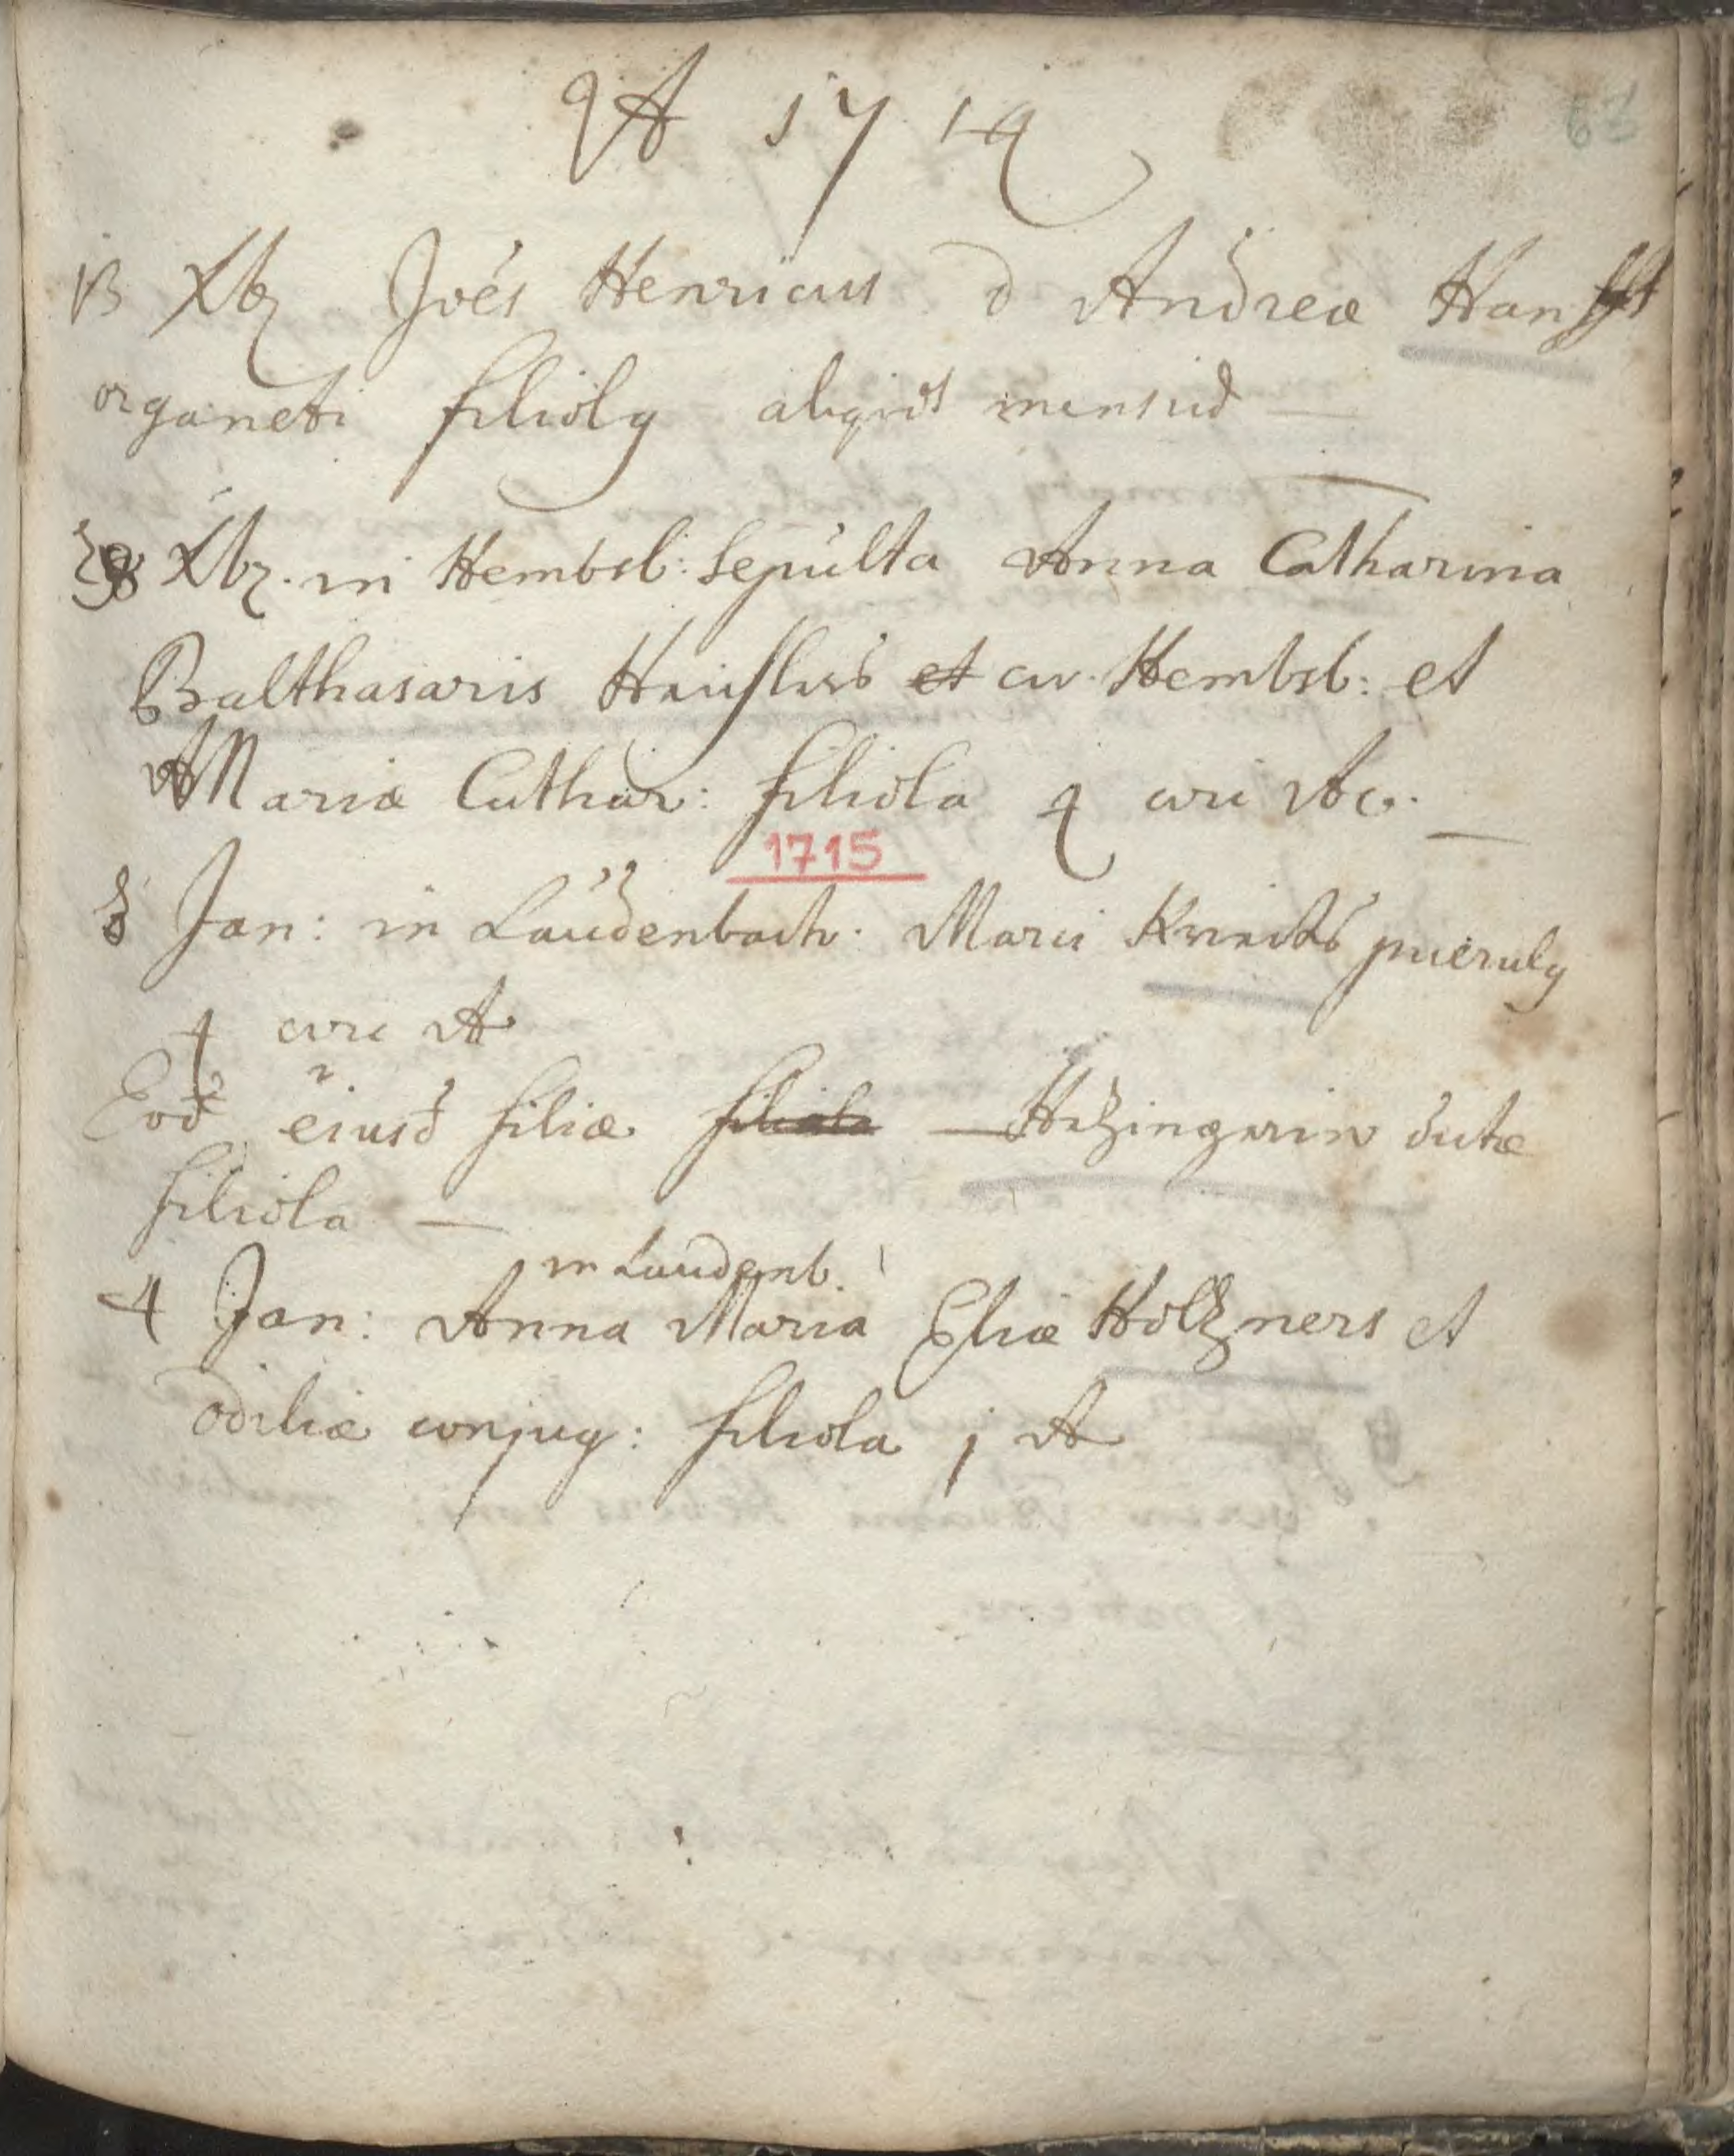 A 1714
13 Xbr Joes Henricus d Andreæ Hanfft
organcti filioly aliqot mensiu
Xbr. in Hembsb: Sepulta Anna Catharina
Balthasaris Heusl et civ. Hembsb: et
Mariæ Cathar: filiola 4 circi A
1715
3 Jan: in Laudenbach: Marci Knechts pueruly
4 circ A
Eod eiusd filiæ filiola — dictæ
filiola —
in Laudenb.
4 Jan: Anna Maria Eliæ Holtzners et
odiliæ conjug: filiola j A